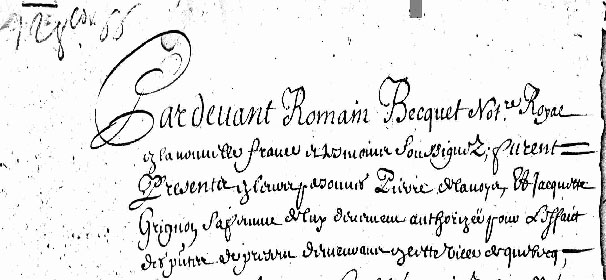 Pardevant Romain Becquet Not.re Royal
en la nouvelle france et tesmoins soussignez, furent
Presents en leurs personnes Pierre delavoye, Et Jacquette
Grignon sa femme de luy deuement authorizée pour L'effait
des pntes de presant demeurans en cette ville de quebecq,